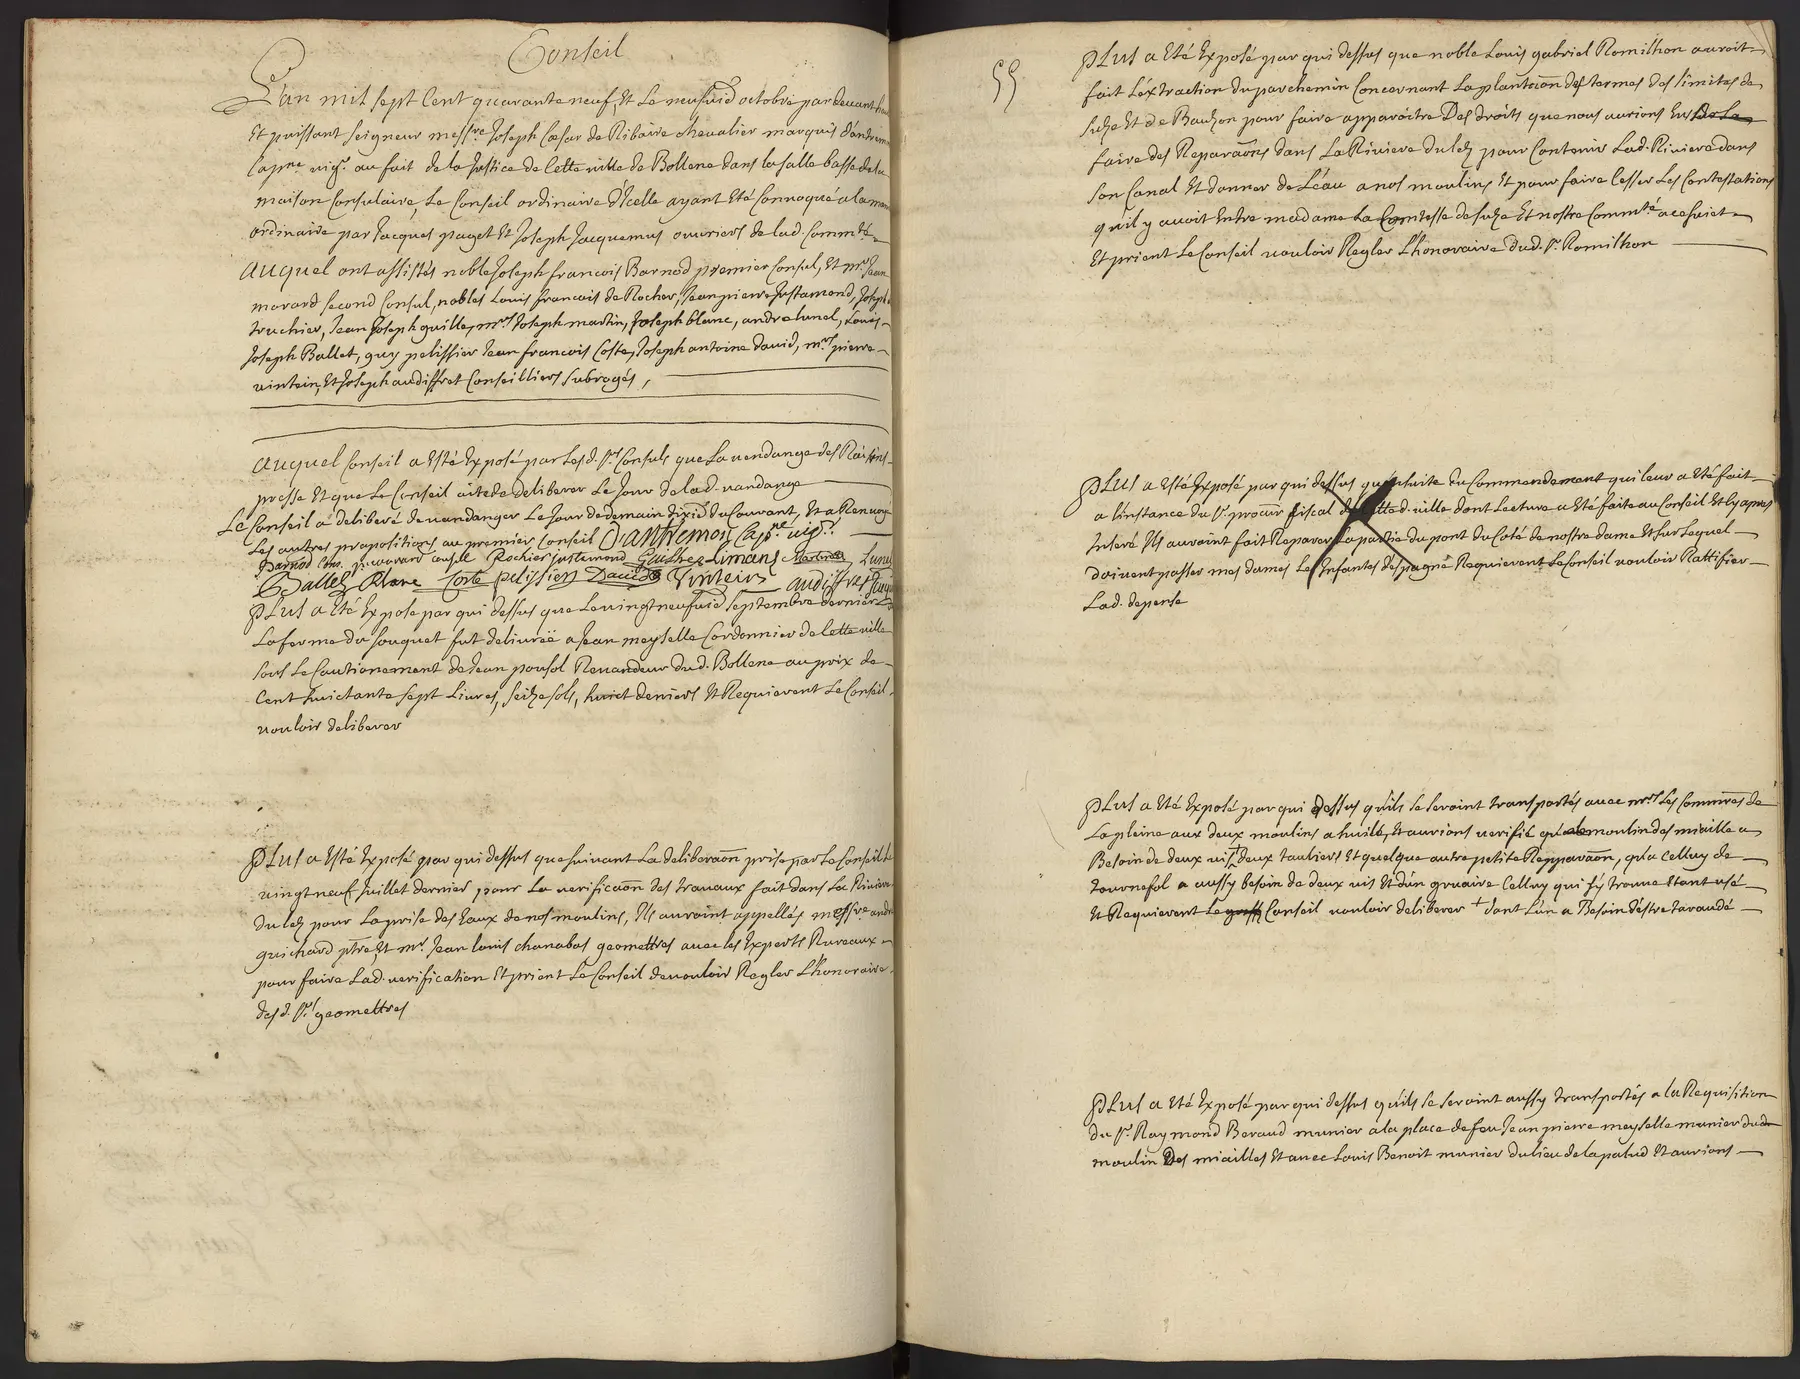 Conseil
L'an mil sept Cent quarante neuf, Et Le neufvie octobre par devant haut
Et puissant Seigneur messre Joseph Cæsar de Ribaire chevalier marquis
Capne vigr. au fait de la Justice de Cette ville de Bollene dans la salle basse de la
maison Consulaire, Le Conseil ordinaire d'Icelle ayant Eté Convoqué a la man
ordinaire par Jacques paget Et Joseph Jacquemus ouvriers de lad. Commté
Auquel ont assistés noble Joseph francois Barnod premier Consul, Et mr. Jean
morard second Consul, nobles Louis francois de Rocher, Jean pierre Justamond, Joseph
truchier, Jean Joseph guille, mrs Joseph martin, Joseph blanc, andre lunel, Louis
Joseph Ballet, guy pelissier Jean francois Coste, Joseph antoine david, mrs pierre
vintein, Et Joseph audiffret Conseilliers subrogés,
Auquel Conseil a Esté Exposé par Lesd. srs Consuls que La vendange des Raisins
presse Et que Le Conseil aite de deliberer Le Jour de lad. vandange
Le Conseil a deliberé de vandanger Le Jour de demain dixie du Courant, Et a Renvoyé
Les autres propositions au premier Conseil D'anthemon Capne vigr.
Barnod Cons. morard Consll Rochier Justamond limans Martin Lunel
Ballet Blanc Coste pelissier David Vintein audiffret
PLUS a Eté Exposé par qui dessus que Le vingt neufvie septembre dernier
La ferme du souquet fut delivreë a Jean meyselle Cordonnier de Cette ville
sous Le Cautionement de Jean pousol Revandeur dud. Bollene au prix de
Cent huictante sept Livres, seize sols, huict deniers Et Requierent Le Conseil
vouloir deliberer
PLUS a Esté Exposé par qui dessus que suivant La deliberaõn prise par Le Conseil Le
vingt neuf Juillet dernier pour La verificaõn des travaux fait dans La Riviere
du lez pour La prise des Eaux de nos moulins, Ils auroint appellés messre andré
guichard ptre, Et mr. Jean louis chanabas geomettres avec les Experts Ruraux
pour faire Lad. verification Et prient Le Conseil de vouloir Regler L'honoraire
des d. srs geomettres
55
PLUS a Eté Exposé par qui dessus que noble Louis gabriel Romilhon auroit
fait L'éxtraction du parchemin Concernant La plantaõn des termes des limites de
suze Et de Bauzon pour faire apparoitre Des droits que nous aurions Eus de La
faire des Reparaõns dans La Riviere du lez pour Contenir Lad. Riviere dans
son Canal Et donner de L'eau a nos moulins Et pour faire Cesser Les Contestations
qu'il y avoit Entre madame La Comtesse de suze Et nostre Commté a ce suiet
Et prient Le Conseil vouloir Regler L'honoraire dud. sr. Romilhon
PLUS a Esté Exposé par qui dessus qu'ensuite du Commandement qui leur a Eté fait
a l'instance du sr. procur fiscal de Cette d. ville dont Lecture a Eté faite au Conseil Et Cy apres
Inseré Ils auroint fait Reparer La partie du pont du Coté de nostre dame Et sur Lequel
doivent passer mes dames Les Infantes d'Espagne Requierent Le Conseil vouloir Rattifier
Lad. depense
PLUS a Eté Exposé par qui dessus qu'ils se seroint transportés avec mrs Les Commres de
La pleine aux deux moulins a huile, Et aurions verifié qu'au moulin des miaille a
Besoin de deux vis + deux tauliers Et quelque autre petite Repparaõn, qu'a Celluy de
tournefol a aussy besoin de deux vis Et d'un gruaire Celluy qui s'y trouve Etant usé
Et Requierent Le Conseil vouloir deliberer + dont L'un a Besoin d'estre taraudé
PLUS a Eté Exposé par qui dessus qu'ils se seroint aussy transportés a la Requisition
du sr. Raymond Beraud munier a la place de feu Jean pierre meyselle munier dud.
moulin Des miailles Et avec Louis Benoit munier du lieu de la palud Et aurions